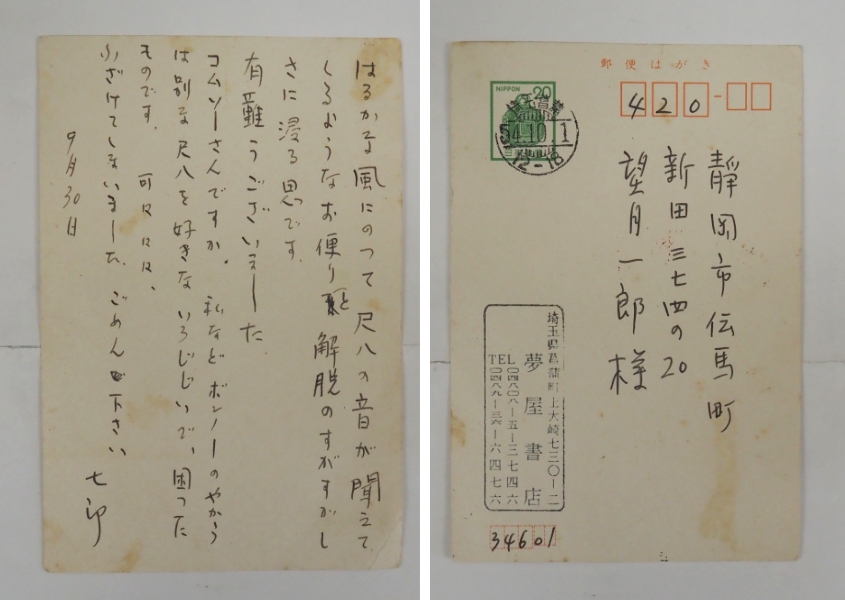 はるかな風にのつて尺八の音が聞えて
くるようなお便りと解脱のすがすがし
さに浸る思いです。
有難うございました。
コムソーさんですか。私などボンノーのやから
は別な尺八を好きないろじじいで、困つた
ものです。呵々々々、
ふざけてしまいました、ごめん下さい
七郎
9月30日
郵便はがき
NIPPON 20
54.10.1
12-18
420
静岡市伝馬町
新田三七四の20
望月一郎様
埼玉県菖蒲町上大崎七三〇ー二
夢屋書店
TEL〇四八〇八ー五ー三七四六
TEL〇四八九ー三六ー六四七六
34601